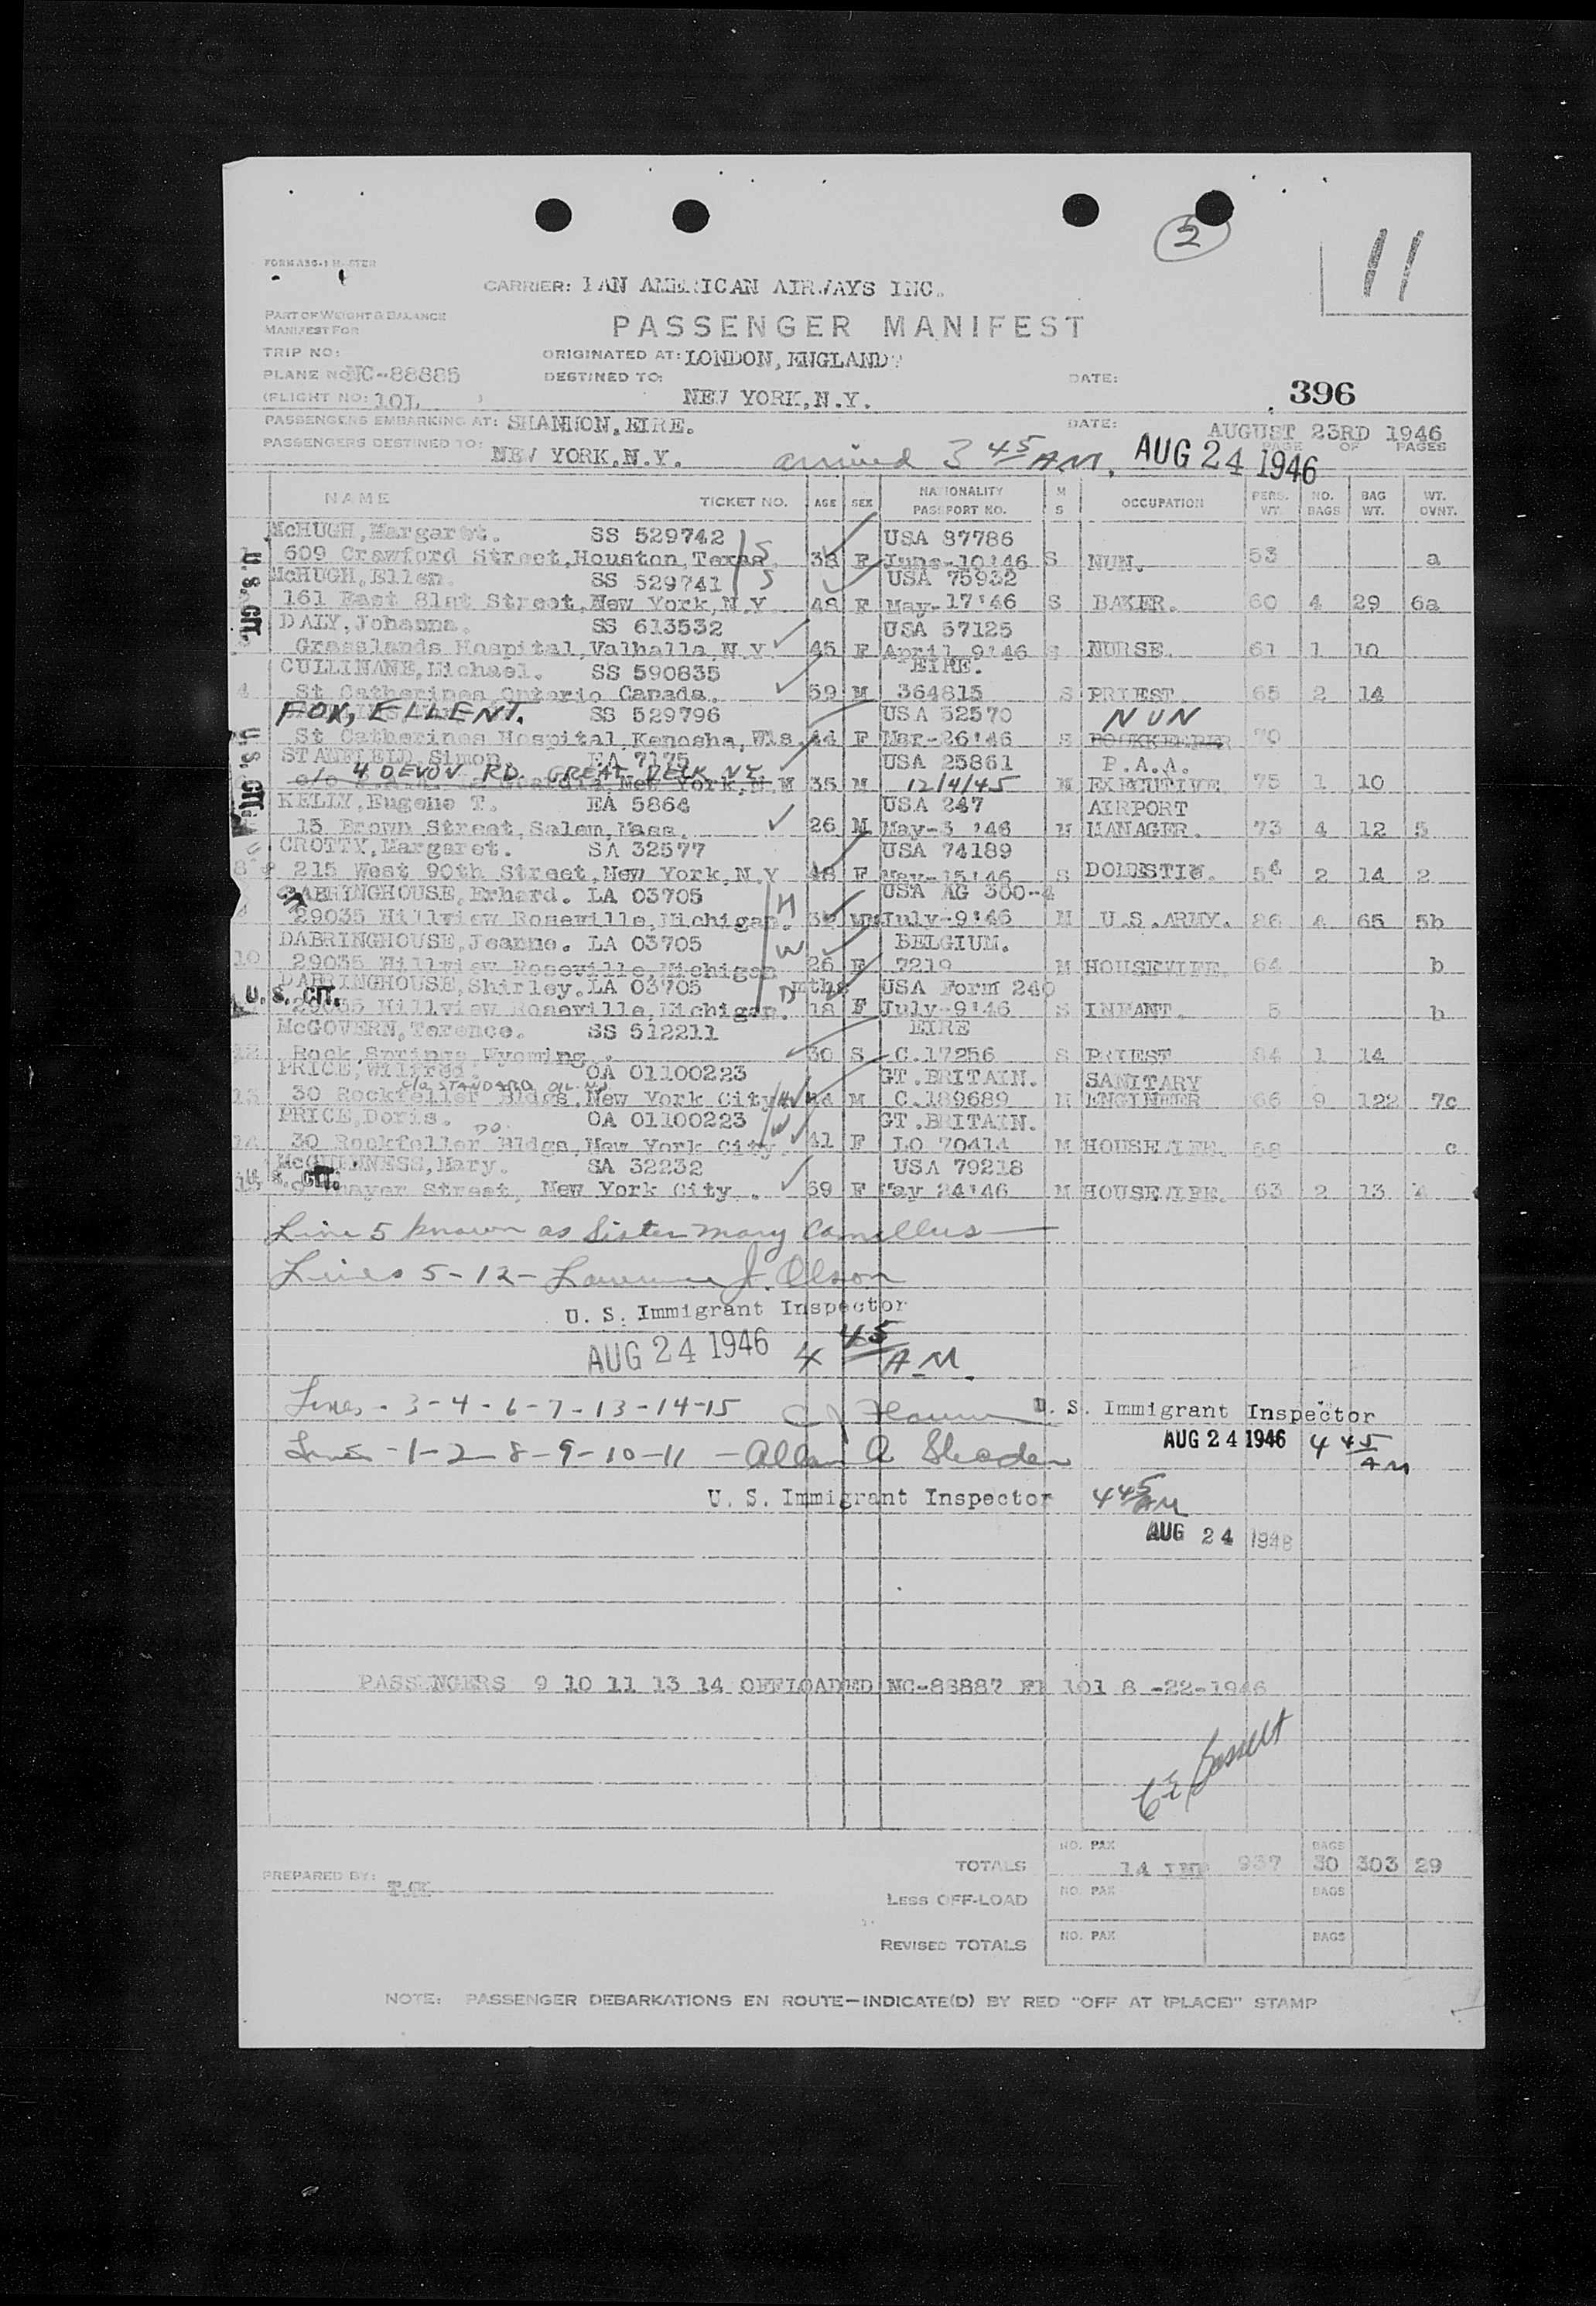 2
11
CARRIER: PAN AMERICAN AIRWAYS INC.
PART OF WEIGHT & BALANCE
MANIFEST FOR
PASSENGER MANIFEST
TRIP NO:
ORIGINATED AT: LONDON, ENGLAND
PLANE NO: NC-88885
DESTINED TO: NEW YORK, N.Y.
DATE:
396
FLIGHT NO: 101
PASSENGERS EMBARKING AT: SHANNON, EIRE.
DATE: AUGUST 23RD 1946
PASSENGERS DESTINED TO: NEW YORK, N.Y.
arrived 3 45 AM. AUG 24 1946
PAGE OF PAGES
NAME TICKET NO. AGE SEX NATIONALITY PASSPORT NO. M S OCCUPATION PERS. WT. NO. BAGS BAG WT. WT. OVNT.
McHUGH, Margaret. SS 529742 USA 87786
609 Crawford Street, Houston, Texas. S 38 F June-10'46 S NUN. 53 a
McHUGH, Ellen. SS 529741 S USA 75932
161 East 81st Street, New York, N.Y 48 F May-17'46 S BAKER. 60 4 29 6a
U.S. CIT.
DALY, Johanna. SS 613532 USA 57125
Grasslands Hospital, Valhalla, N.Y 45 F April 9'46 S NURSE. 61 1 10
CULLINANE, Michael. SS 590835 EIRE.
4 St Catherines Ontario Canada. 59 M 364815 S PRIEST. 65 2 14
FOX, ELLEN T. SS 529796 USA 52570 NUN
St Catherines Hospital, Kenosha, Wis. 44 F Mar-26'46 S BOOKKEEPER 70
U.S. CIT.
STANFIELD, Simon EA 7175 USA 25861 P.A.A.
4 DEVON RD. GREAT NECK NY.
New York, N.Y 35 M 12/4/45 M EXECUTIVE 75 1 10
KELLY, Eugene T. EA 5864 USA 247 AIRPORT
15 Brown Street, Salem, Mass. 26 M May-3 '46 M MANAGER. 73 4 12 5
CROTTY, Margaret. SA 32577 USA 74189
8 215 West 90th Street, New York, N.Y 48 F May-15'46 S DOMESTIC. 54 2 14 2
DABRINGHOUSE, Erhard. LA 03705 H USA AG 300-4
29035 Hillview Roseville, Michigan. July-9'46 M U.S. ARMY. 86 4 65 5b
DABRINGHOUSE, Jeanne. LA 03705 W BELGIUM.
10 29035 Hillview Roseville, Michigan 26 F 7219 M HOUSEWIFE. 64 b
DABRINGHOUSE, Shirley. LA 03705 D mths USA Form 240
U.S. CIT.
29035 Hillview Roseville, Michigan. 18 F July-9'46 S INFANT. 5 b
McGOVERN, Terence. SS 512211 EIRE
12 Rock Springs Wyoming. 30 S C.17256 S PRIEST 84 1 14
PRICE, Wilfred. OA 01100223 GT. BRITAIN. SANITARY
c/o STANDARD OIL NJ
13 30 Rockfeller Bldgs, New York City H 44 M C.189689 M ENGINEER 66 9 122 7c
PRICE, Doris. OA 01100223 GT. BRITAIN.
DO.
14 30 Rockfeller Bldgs, New York City. W 41 F LO 70414 M HOUSEWIFE. 58 c
McGUINNESS, Mary. SA 32232 USA 79218
15 U.S. CIT. Thayer Street, New York City. 59 F May 24'46 M HOUSEWIFE. 63 2 13 4
Line 5 known as Sister Mary Camillus
Lines 5-12- Lawrence J. Olson
U. S. Immigrant Inspector
AUG 24 1946 4 45 A.M.
Lines - 3-4-6-7-13-14-15 U. S. Immigrant Inspector
AUG 24 1946 4 45 AM
Lines -1-2-8-9-10-11 - Allan A
U. S. Immigrant Inspector 4 45 AM
AUG 24 1946
PASSENGERS 9 10 11 13 14 OFFLOADED NC-88887 Fl 101 8 -22-1946
NO. PAX BAGS
TOTALS 14 INF 937 30 303 29
PREPARED BY: T.
LESS OFF-LOAD NO. PAX BAGS
REVISED TOTALS NO. PAX BAGS
NOTE: PASSENGER DEBARKATIONS EN ROUTE—INDICATE(D) BY RED "OFF AT (PLACE)" STAMP